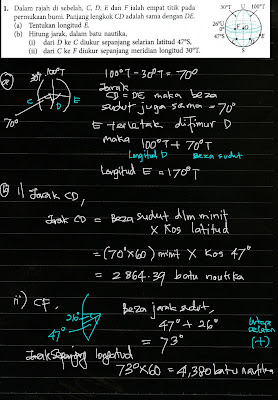 1. Dalam rajah di sebelah, C, D, E dan F ialah empat titik pada
permukaan bumi. Panjang lengkok CD adalah sama dengan DE.
(a) Tentukan longitud E.
(b) Hitung jarak, dalam batu nautika,
(i) dari D ke C diukur sepanjang selarian latitud 47°S,
(ii) dari C ke F diukur sepanjang meridian longitud 30°T.
30°T U 100°T
F 26°U
C D E
S
(a) 30°T 100°T
C D E
70°
100°T - 30°T = 70°
Jarak
CD = DE maka beza
sudut juga sama = 70°
E terletak di timur D
maka 100°T + 70°T
Longitud D beza sudut
Longitud E = 170°T
(b) i) Jarak CD,
Jrak CD = Beza sudut dlm minit
x Kos latitud
= (70°x60) minit x Kos 47°
= 2864.39 batu nautika
ii) CF,
26°
47°
Beza jarak sudut,
47° + 26°
= 73°
Utara
selatan
(+)
Jarak sepanjang longitud
73° x 60 = 4,380 batu nautika